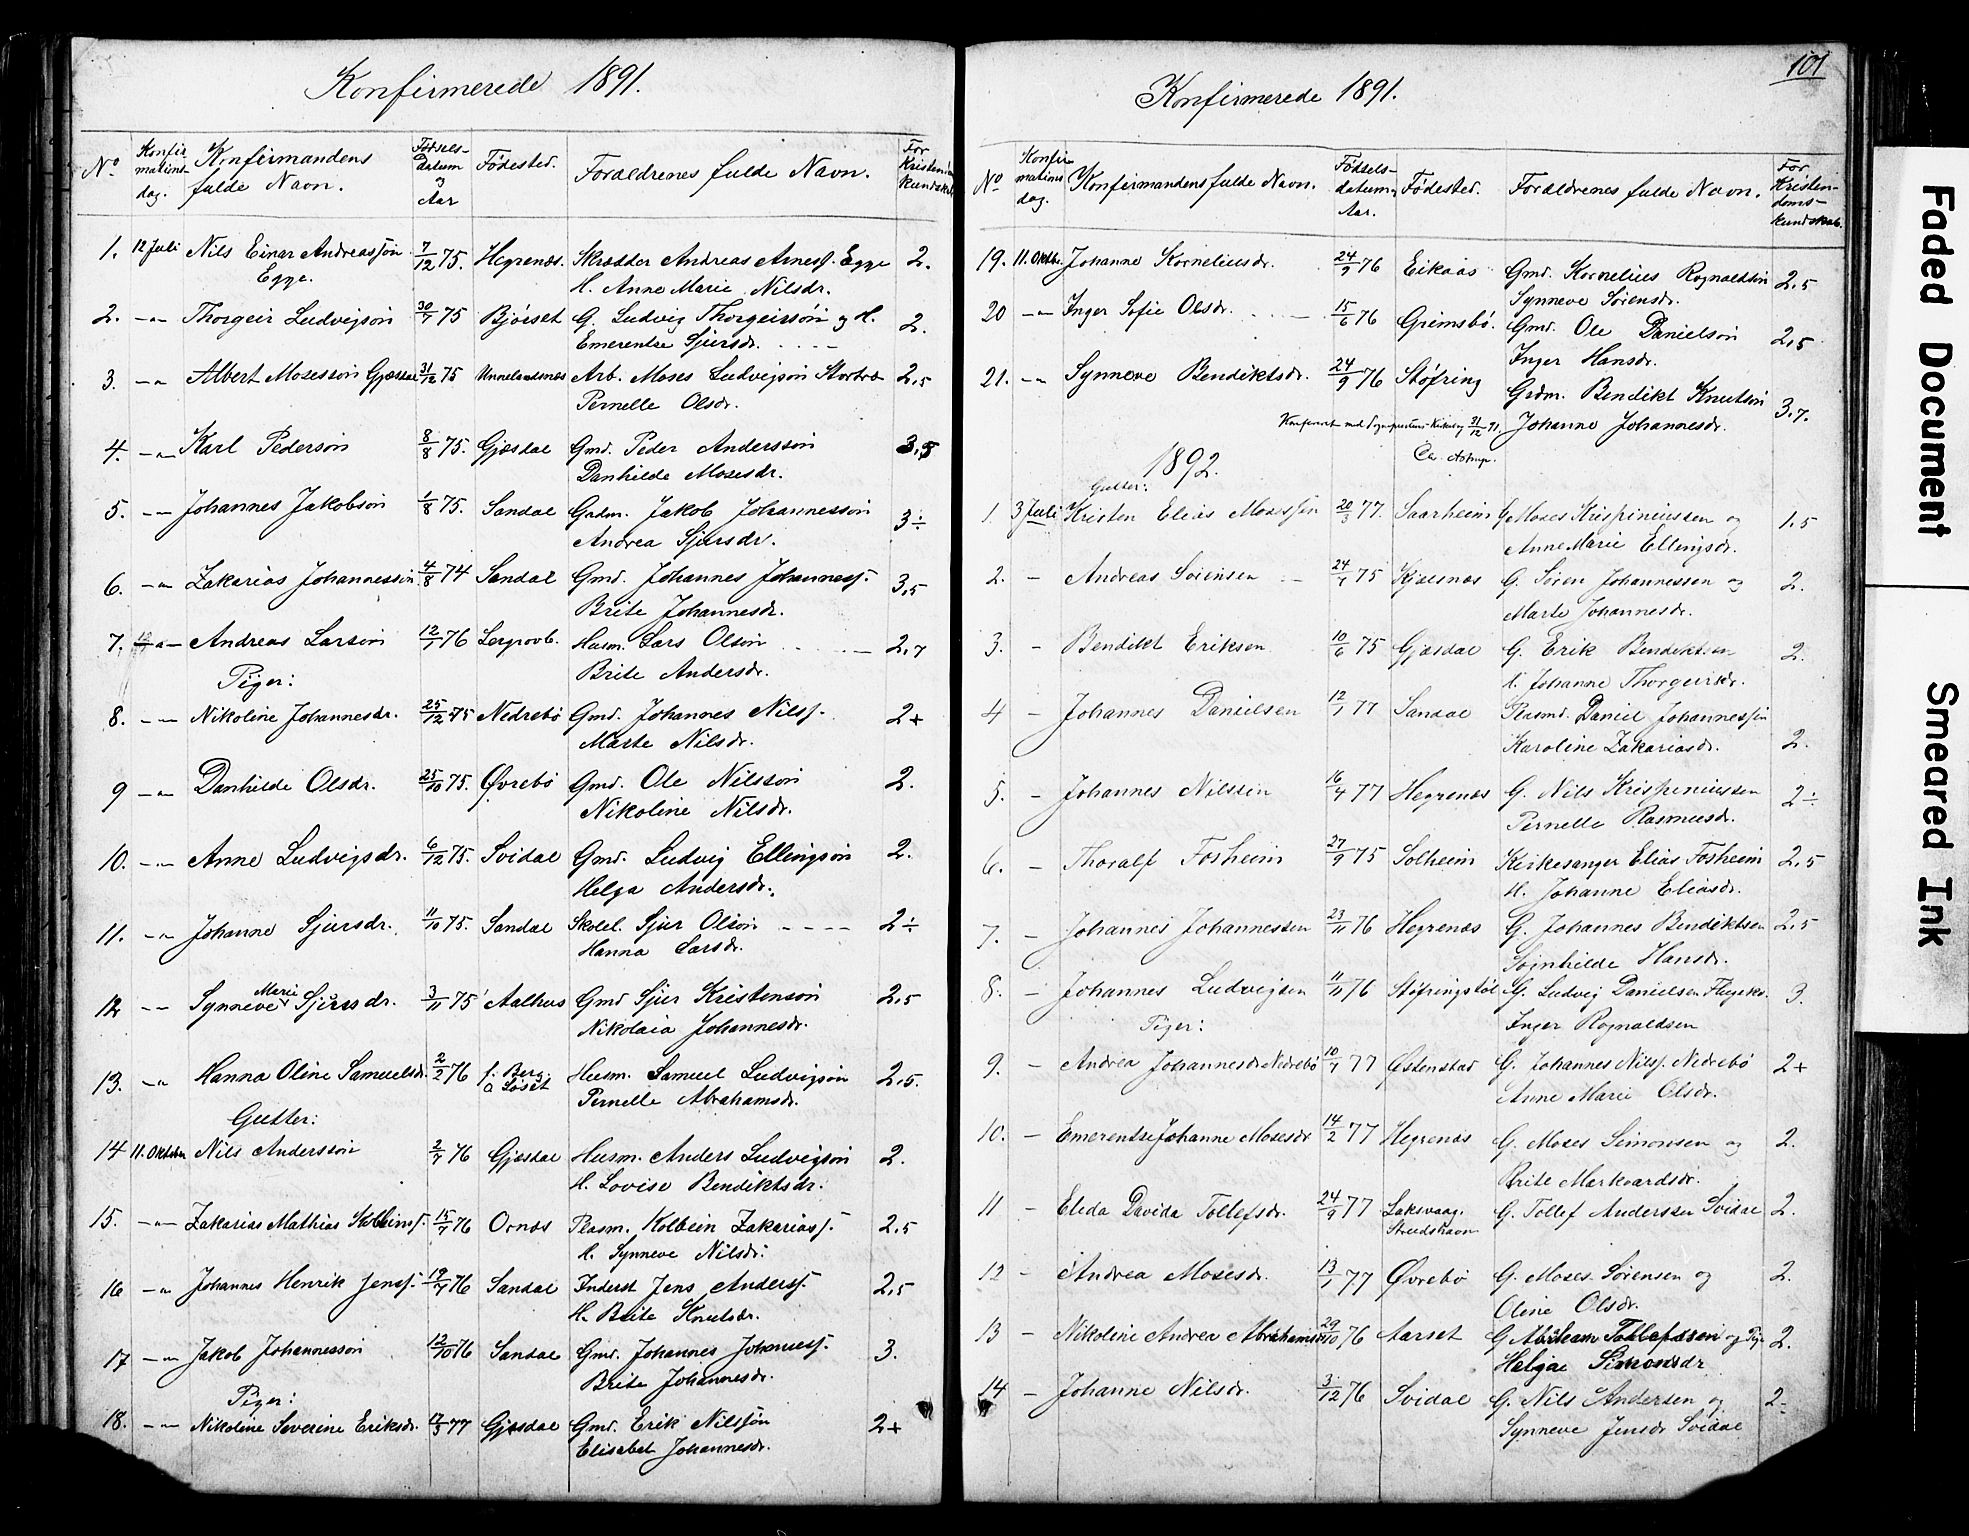 Konfirmerede 1891.
No Konfirmationsdag. Konfirmandens fulde Navn. Fødselsdatum og Aar Fødested. Forældrenes fulde Navn. For Kristendomskundskab
1. 12 Juli Nils Einar Andreassøn 7/12 75. Hegrenæs. Skrædder Andreas Arness. Egge 2.
Egge. H. Anne Marie Nilsdr.
2. -"- Thorgeir Ludvigsøn 30/7 75 Bjørset G. Ludvig Thorgeirssøn og H. 2.
Emerentse Sjursdr.
3. -" Albert Mosessøn Gjæsdal 31/12 75 Unnelandsnæs Arb. Moses Ludvigsøn 2,5
Pernelle Olsdr.
4. -"- Karl Pedersøn 8/8 75. Gjæsdal Gmd. Peder Anderssøn 3,5
Danhilde Mosesdr.
5. -"- Johannes Jakobsøn 1/8 75. Sandal Grdm. Jakob Johannessøn 3÷
Andrea Sjursdr.
6. -" Zakarias Johannessøn 4/8 74 Sandal Gmd. Johannes Johanness. 3,5
Brite Johannesdr.
7. -"- Andreas Larsøn 12/7 76 Lergrovb. Husm. Lars Olsøn 2,7
Brite Andersdr.
Piger:
8. -"- Nikoline Johannesdr. 25/12 75 Nedrebø Gmd. Johannes Nilss. 2+
Marte Nilsdr.
9 -"- Danhilde Olsdr. 25/10 75. Øvrebø Gmd. Ole Nilssøn 2.
Nikoline Nilsdr.
10. -"- Anne Ludvigsdr. 6/12 75. Svidal Gmd. Ludvig Ellingsøn 2.
Helga Andersdr.
11. -"- Johanne Sjursdr. 11/10 75. Sandal Skolel. Sjur Olsøn 2÷
Hanna Larsdr.
12 -"- Synneve Marie Sjursdr. 3/11 75 Aalhus Gmd Sjur Kristensøn 2,5
Nikolaia Johannesdr.
13. -" Hanna Oline Samuelsdr. 2/2 76 f. Berg. Husm. Samuel Ludvigsøn 2,5.
Løset Pernelle Abrahamsdr.
Gutter:
14 11. Oktober Nils Anderssøn 2/7 76 Gjæsdal Husm. Anders Ludvigsøn 2.
H. Lovise Bendiktsdr.
15. -"- Zakarias Mathias Kolbeinss. 15/7 76 Ornæs Plasm. Kolbein Zakariass. 2,5
H. Synneve Nilsdr.
16 -" Johannes Henrik Jenss. 19/7 76 Sandal Inderst Jens Anderss. 2,5
H. Brite Knutsdr.
17 -"- Jakob Johannessøn 12/10 76 Sandal Gmd. Johannes Johanness. 3.
Brite Johannesdr.
Piger:
18. -"- Nikoline Severine Eriksdr. 77 Gjæsdal Gmd. Erik Nilssøn 2+
Elisabet Johannesdr.
101
Konfirmerede 1891.
No Konfirmationsdag. Konfirmandens fulde Navn. Fødselsdatum Aar. Fødested. Forældrenes fulde Navn. For Kristendomskundskab.
19. 11. Oktbr. Johanne Kornelиusdr. 24/9 76 Eikaas Gmd. Kornelius Rognaldsøn 2,5
Synneve Sørensdr.
20 -"- Inger Sofie Olsdr. 15/6 76 Grimsbø. Gmd. Ole Danielsøn 2,5
Inger Hansdr.
21. -"- Synneve Bendiktsdr. 24/9 76 Støfring Grdm. Bendikt Knutsøn 3,7.
Konfirmeret ved 31/12 91. Johanne Johannesdr.
Astrup.
1892.
Gutter:
1. 3 Juli Kristen Elias Mosessøn 20/3 77. Saarheim G. Moses Krispiniussen og 1,5
Anne Marie Ellingsdr.
2. - Andreas Sørensen 75 Kjøsnæs G. Søren Johannessen og 2.
Marte Johannesdr.
3. - Bendikt Eriksen 10/6 75 Gjæsdal G. Erik Bendiktsen 2.
H. Johanne Thorgersdr.
4 - Johannes Danielsen 12/1 77 Sandal Plasmd. Daniel Johannessen
Karoline Zakariasdr. 2.
5. - Johannes Nilssen 16/4 77 Hegrenæs G. Nils Krispiniussen 2÷
Pernelle Rasmusdr.
6. - Thoralf Fosheim 27/9 75 Solheim Kirkesanger Elias Fosheim 2,5
H. Johanne Eliasdr.
7. - Johannes Johannessen 23/11 76 Hegrenæs G. Johannes Bendiktsen 2,5
Søgnhilde Hansdr.
8. - Johannes Ludvigsen 11/11 76 Støfringstøl G. Ludvig Danielsen 3.
Inger Rognaldsen
Piger:
9. - Andrea Johannesdr Nedrebø 10/7 77 Østenstad G. Johannes Nilss. Nedrebø 2+
Anne Marie Olsdr.
10. - Emerentse Johanne Mosesdr 14/2 77 Hegrenæs G. Moses Simonsen og 2.
Brite Markvardsdr.
11 - Eleda Davida Tollefsdr. 24/9 77 Laksevaag. G. Tollef Andersen Svidal 2.
Strudshavn
12 - Andrea Mosesdr. 13/1 77 Øvrebø G. Moses Sørensen og 2.
Oline Olsdr.
13 - Nikoline Andrea Abrahamsdr 29/10 76 Aarset G Abraham Tollefssen og Pige 2.
Helga Simonsdr
14 - Johanne Nilsdr. 3/12 76 Svidal G. Nils Andersen og 2-
Synneve Jensdr Svidal
Faded Document
Smeared Ink